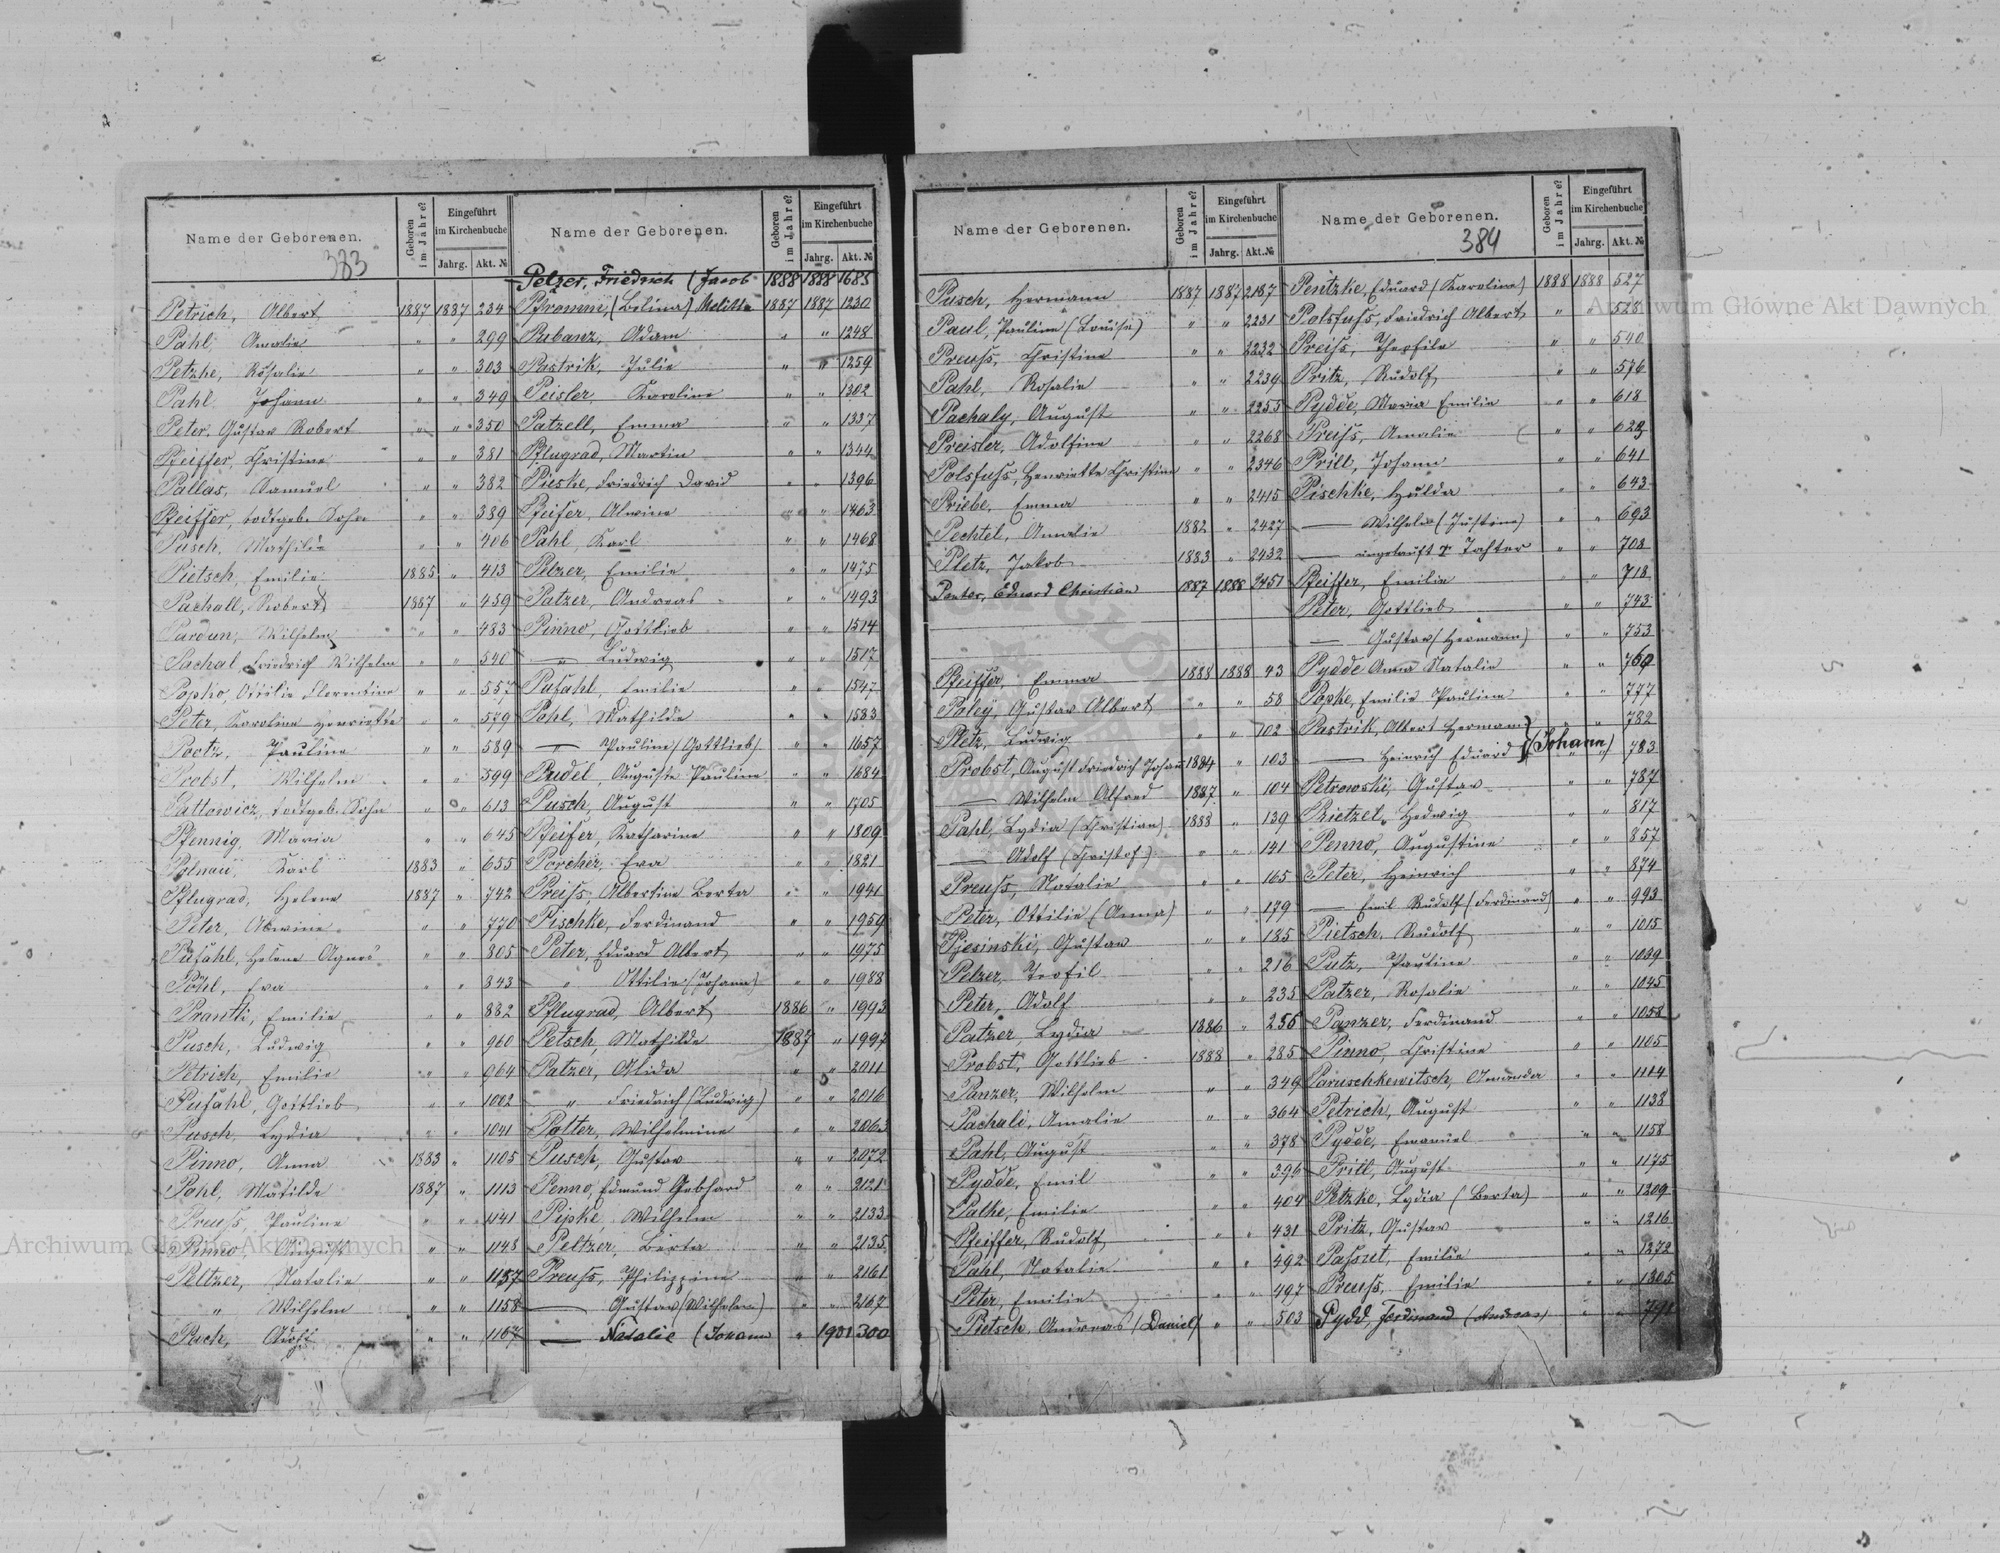 Name der Geborenen.
Geboren im Jahre?
Eingeführt im Kirchenbuche
Jahrg. Akt. №
383
Petrich, Albert 1887 1887 234
Pahl, Amalie " " 299
Petzke, Rosalie " " 303
Pahl, Johann " " 349
Peter, Gustav Robert " " 350
Pfeiffer, Christine " " 381
Pallas, Samuel " " 382
Pfeiffer, todtgeb. Sohn " " 389
Pusch, Mathilde " " 406
Pietsch, Emilie 1885 " 413
Pachall, Robert 1887 " 459
Pardun, Wilhelm " " 483
Pachal, Friedrich Wilhelm " " 540
Popko, Ottilie Florentine " " 557
Peter, Karoline Henriette " " 579
Pootz, Pauline " " 589
Probst, Wilhelm " " 599
Pattowicz, todtgeb. Sohn " " 613
Pfennig, Maria " " 645
Polnau, Karl 1883 " 655
Pflugrad, Helene 1887 " 742
Peter, Alwine " " 770
Pufahl, Helene Agnes " " 805
Pöhl, Eva " " 843
Prantli, Emilie " " 882
Pusch, Ludwig " " 960
Petrich, Emilie " " 964
Pufahl, Gottlieb " " 1002
Pusch, Lydia " " 1041
Pinno, Anna 1883 " 1105
Pohl, Matilde 1887 " 1113
Preuss, Pauline " " 1141
Pinno, August " " 1148
Peltzer, Natalie " " 1157
" Wilhelm " " 1158
Puch, Adolf " " 1167
Name der Geborenen.
Geboren im Jahre?
Eingeführt im Kirchenbuche
Jahrg. Akt. №
Pelzer, Friedrich (Jacob 1888 1888 1685
(Bolina) Melitta 1887 1887 1230
Rubanz, Adam " " 1248
Pastrik, Julie " " 1259
Peisler, Karoline " " 1302
Patzell, Emma " " 1337
Pflugrad, Martin " " 1344
Pieske, Friedrich David " " 1396
Pfeifer, Alwine " " 1463
Pahl, Karl " " 1468
Pelzer, Emilie " " 1475
Patzer, Andreas " " 1493
Pinno, Gottlieb " " 1514
— " — Ludwig " " 1517
Pufahl, Emilie " " 1547
Pohl, Mathilde " " 1583
— " — Pauline (Gottlieb) " " 1657
Pudel, Auguste Pauline " " 1684
Pusch, August " " 1705
Pfeifer, Katharine " " 1809
Porcher, Eva " " 1821
Preiss, Albertine Berta " " 1941
Pischke, Ferdinand " " 1959
Peter, Eduard Albert " " 1975
" Ottilie (Johann) " " 1988
Pflugrad, Albert 1886 " 1993
Petsch, Mathilde 1887 " 1997
Patzer, Alida " " 2011
— " — Friedrich (Ludwig) " " 2016
Potter, Wilhelmine " " 2063
Pusch, Gustav " " 2072
Penno, Edmund Gebhard " " 2121
Pipke, Wilhelm " " 2133
Peltzer, Berta " " 2135
Preuss, Philippine " " 2161
— Gustav (Wilhelm) " " 2167
— Natalie (Johann " 1901 300
Name der Geborenen.
Geboren im Jahre?
Eingeführt im Kirchenbuche
Jahrg. Akt. №
Pusch, Hermann 1887 1887 2187
Paul, Pauline (Louise) " " 2231
Preuss, Christine " " 2232
Pahl, Rosalie " " 2234
Pachaly, August " " 2255
Preisler, Adolfine " " 2268
Polsfuss, Henriette Christine " " 2346
Priebe, Emma " " 2415
Pechtel, Amalie 1882 " 2427
Pletz, Jakob 1883 " 2432
Penter, Edward Christian 1887 1888 2451
Pfeiffer, Emma 1888 1888 43
Paley, Gustav Albert " " 58
Pletz, Ludwig " " 102
Probst, August Friedrich Johann 1884 " 103
— Wilhelm Alfred 1887 " 104
Pahl, Lydia (Christian) 1888 " 139
— Adolf (Christof) " " 141
Preuss, Natalie " " 165
Peter, Ottilie (Anna) " " 179
Pjesinski, Gustav " " 185
Pelzer, Teofil " " 216
Peter, Adolf " " 235
Patzer, Lydia 1886 " 256
Probst, Gottlieb 1888 " 285
Panzer, Wilhelm " " 349
Pachali, Amalie " " 364
Pahl, August " " 378
Pydde, Emil " " 396
Pathe, Emilie " " 404
Pfeiffer, Rudolf " " 431
Pahl, Natalie " " 492
Peter, Emilie " " 497
Pietsch, Andreas (Daniel) " " 503
Name der Geborenen.
Geboren im Jahre?
Eingeführt im Kirchenbuche
Jahrg. Akt. №
384
Pentzke, Eduard (Karoline) 1888 1888 527
Polsfuss, Friedrich Albert " " 528
Preiss, Theofile " " 540
Pritz, Rudolf " " 576
Pydde, Maria Emilie " " 618
Preiss, Amalie " " 629
Prill, Johann " " 641
Pischke, Hulda " " 643
— Wilhelm (Justine) " " 693
— ungetauft Tochter " " 708
Pfeiffer, Emilie " " 718
Peter, Gottlieb " " 743
— Gustav (Hermann) " " 753
Pydde Anna Natalie " " 760
Popke, Emilie Pauline " " 777
Pastrik, Albert Hermann " " 782
— Heinrich Eduard (Johann) " " 783
Petrowski, Gustav " " 787
Rietzel, Hedwig " " 817
Penno, Augustine " " 857
Peter, Heinrich " " 874
— Emil Rudolf (Ferdinand) " " 993
Pietsch, Rudolf " " 1015
Putz, Pauline " " 1039
Patzer, Rosalie " " 1045
Panzer, Ferdinand " " 1058
Pinno, Christine " " 1105
Paruschkewitsch, Amanda " " 1114
Petrich, August " " 1138
Pydde, Emanuel " " 1158
Prill, August " " 1175
Petzke, Lydia (Berta) " " 1209
Pritz, Gustav " " 1216
Passiet, Emilie " " 1272
Preuss, Emilie " " 1305
Pydd, Ferdinand (Andreas) " " 791
Archiwum Główne Akt Dawnych
Archiwum Główne Akt Dawnych